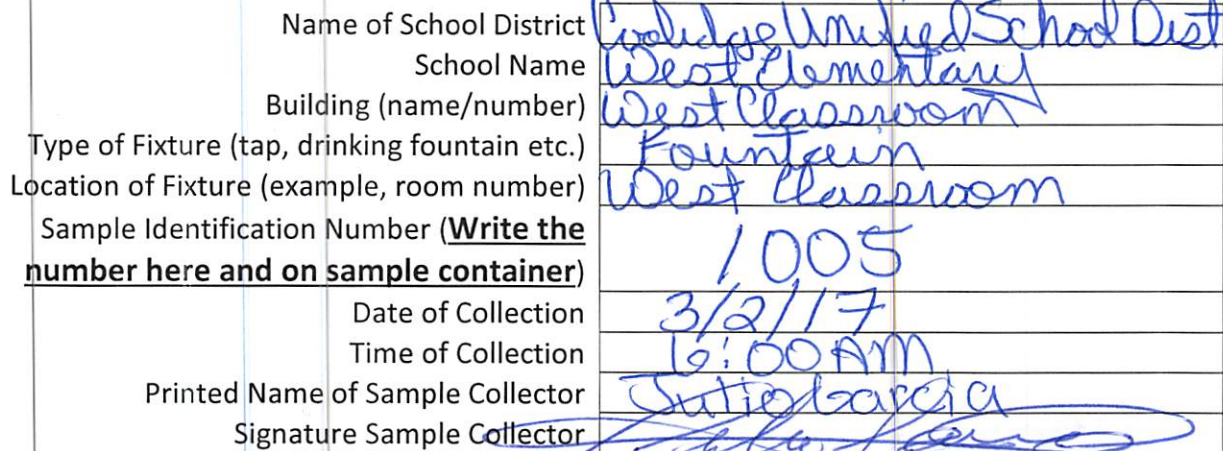 Name of School District Coolidge Unified School Dist
School Name West Elementary
Building (name/number) West Classroom
Type of Fixture (tap, drinking fountain etc.) Fountain
Location of Fixture (example, room number) West Classroom
Sample Identification Number (Write the
number here and on sample container) 1005
Date of Collection 3/2/17
Time of Collection 6:00 AM
Printed Name of Sample Collector Julio Garcia
Signature Sample Collector